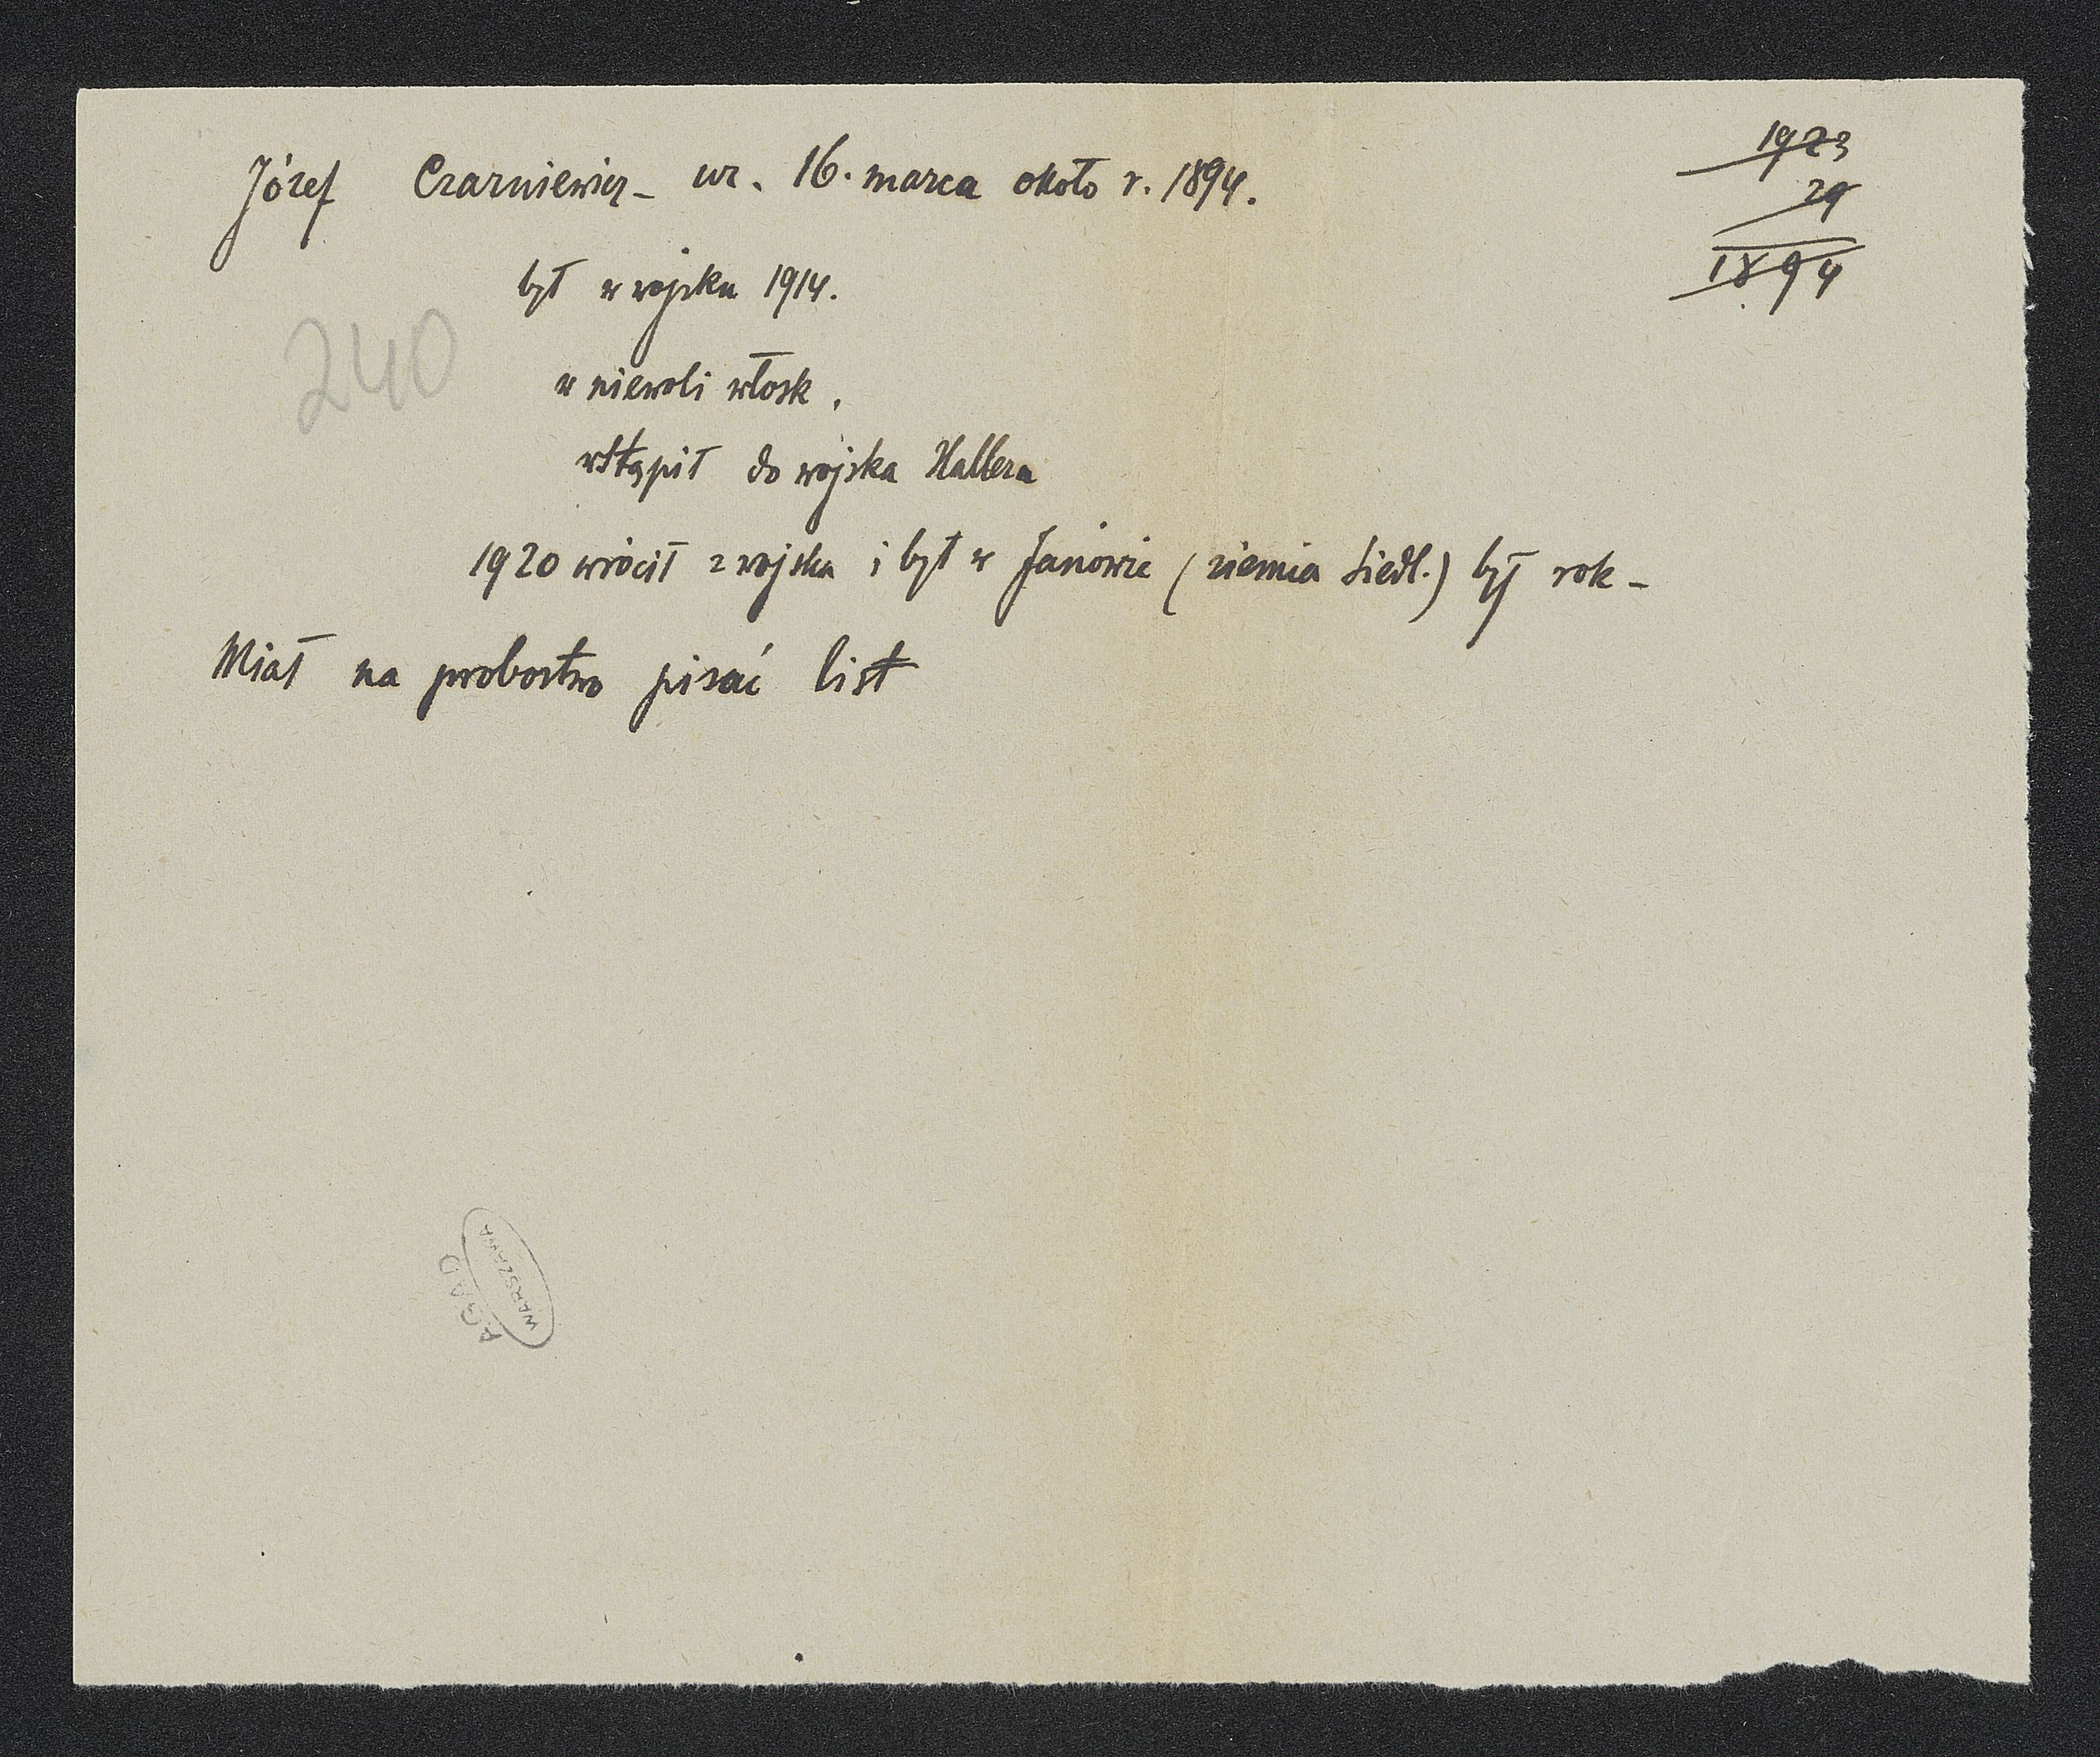 Józef Czarniewicz - ur. 16. marca około r. 1894.
1923
29
1894
był w wojsku 1914.
240
w niewoli włosk.
wstąpił do wojska Hallera
1920 wrócił z wojska i był w Janowie (ziemia Siedl.) był rok -
Miał na probostwo pisać list
AGAD
WARSZAWA